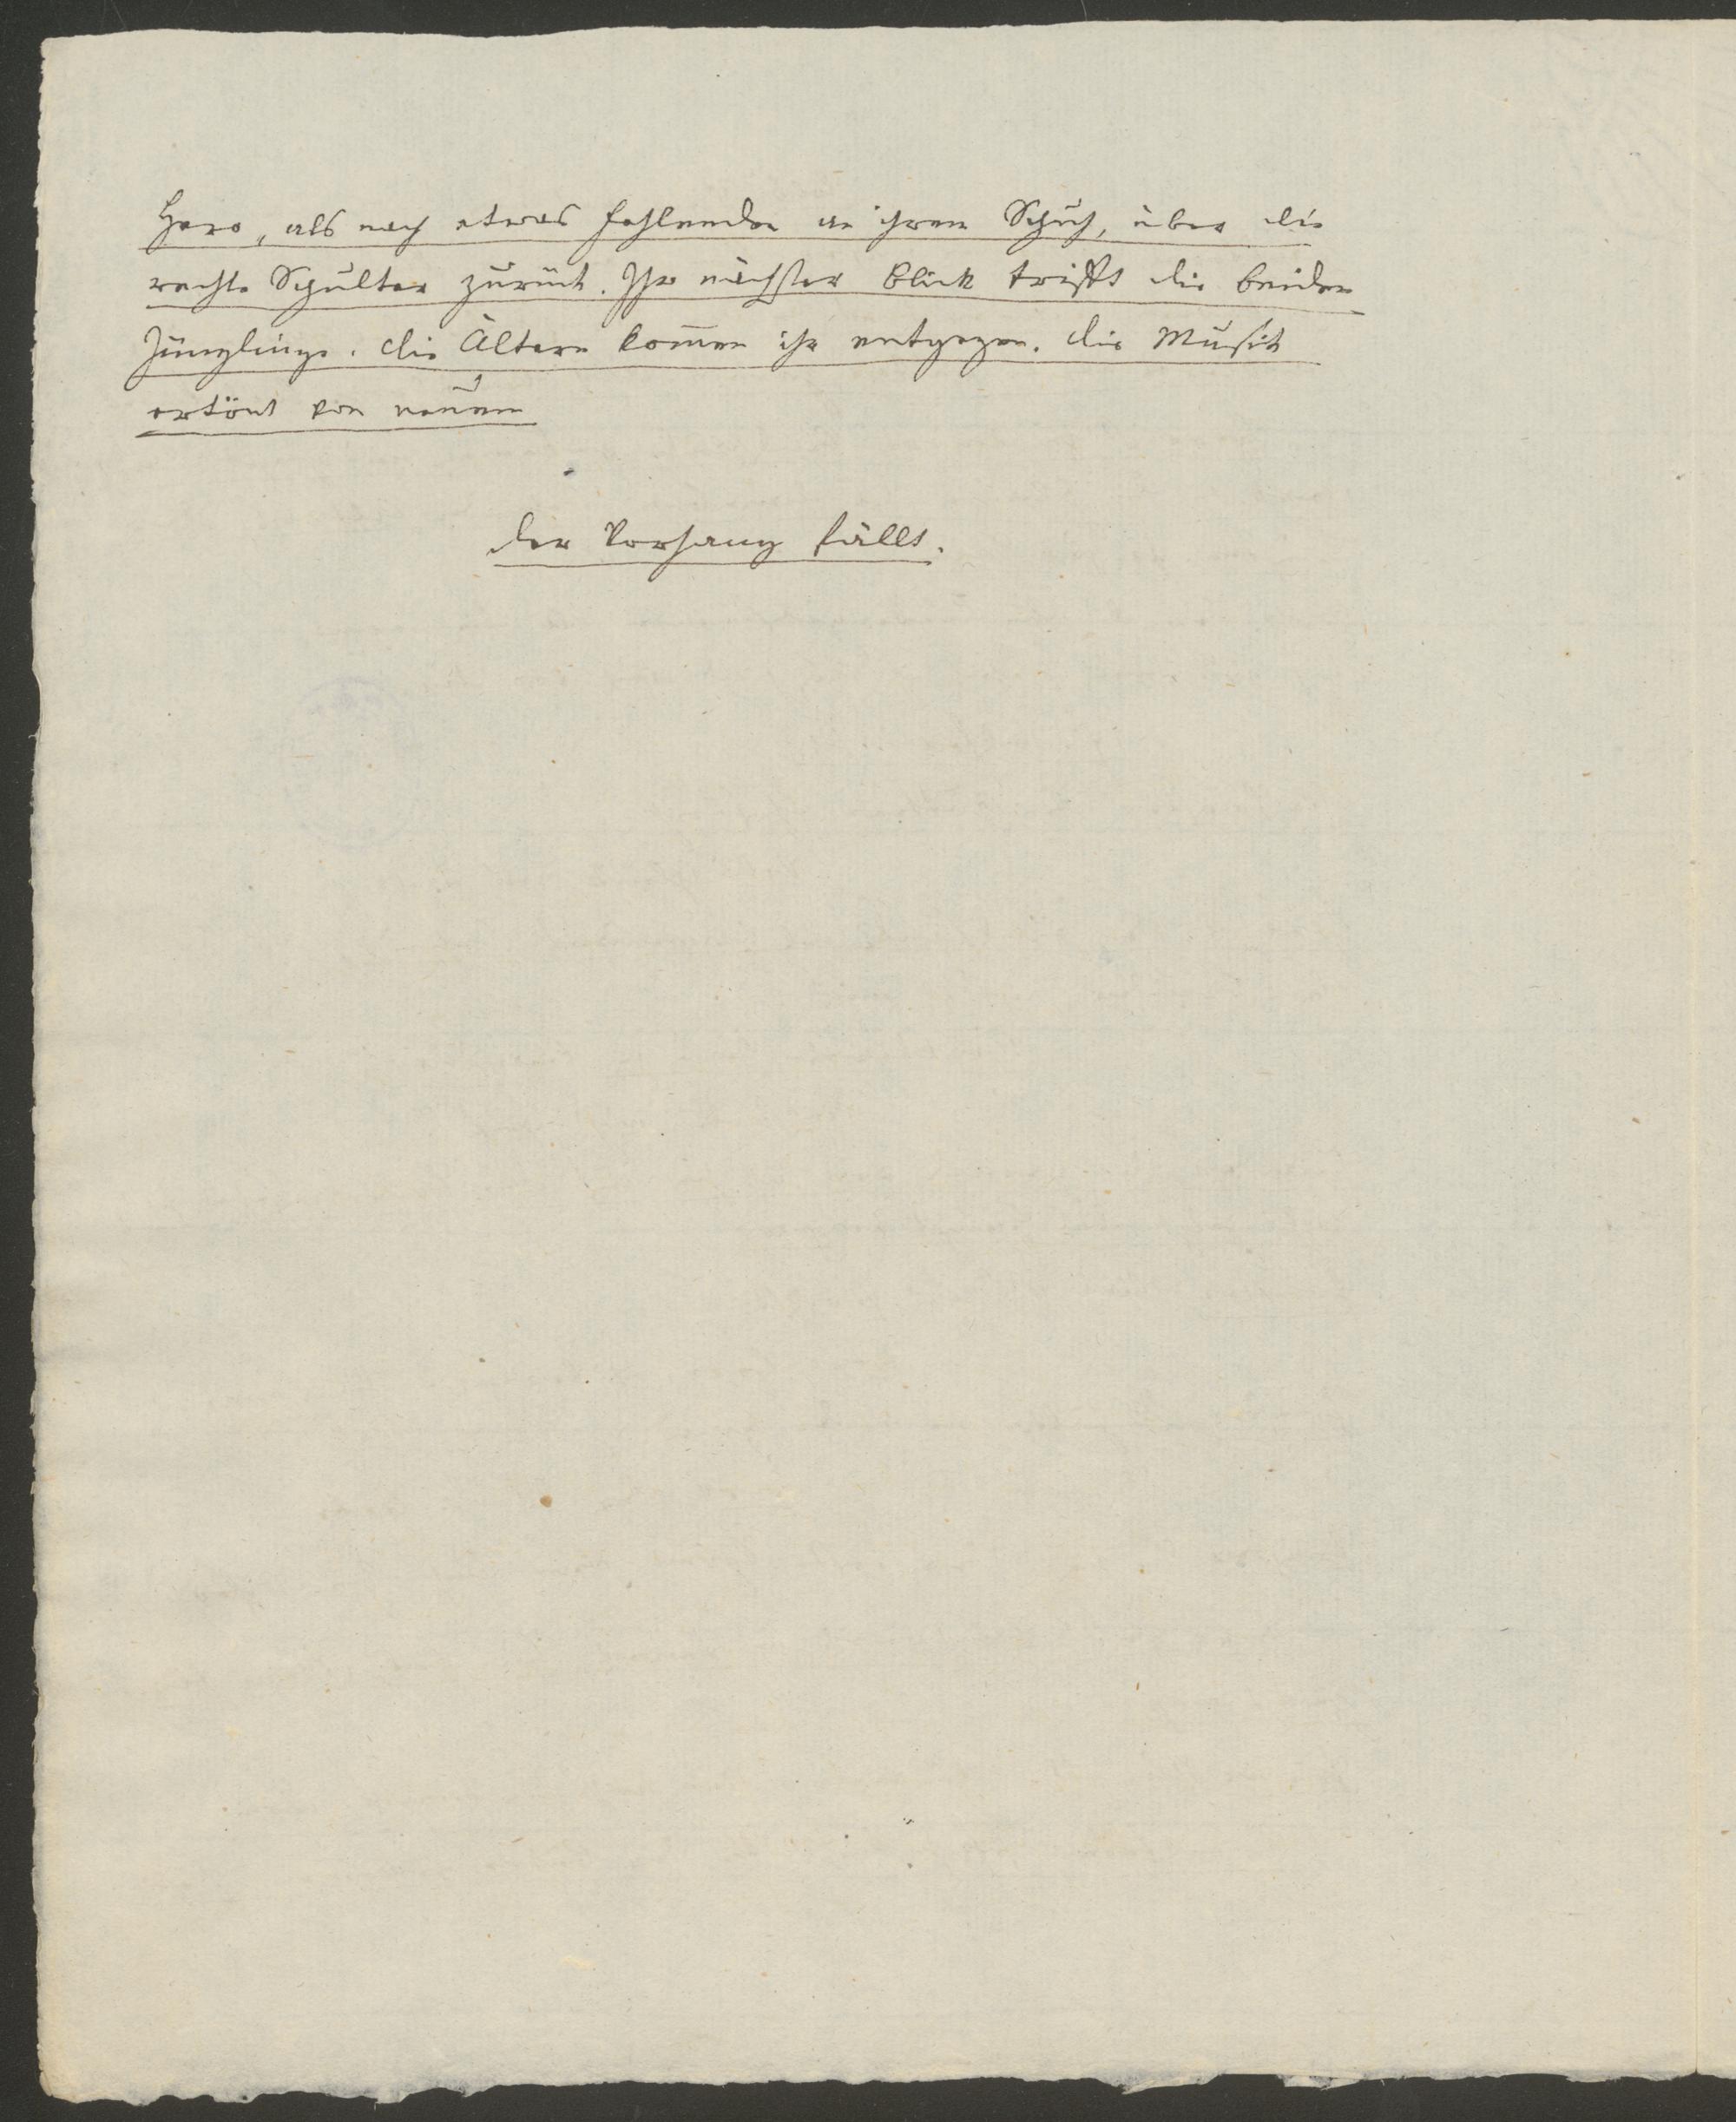 Hero, als nach etwas fehlenden an ihrem Schuh, über die
rechte Schulter zurück. Ihr nächster Blick trifft die beiden
Jünglinge. die Ältern kom̅en ihr entgegen. die Musik
ertönt von neuem
der Vorhang fällt.